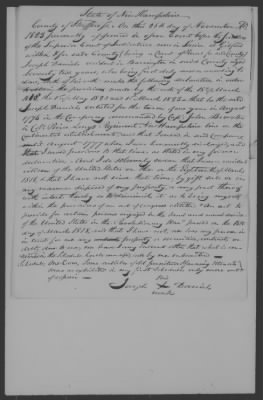 State of New Hampshire
County of Strafford. On this 21st day of November AD
1823 personally appeared in open Court before the Justices
of the Superior Court of Judicature now in session at
for said County being a Court of Record
Joseph Daniels resident in Barrington in said County aged
seventy two years, who being first duly sworn according to
law, doth on his oath make the following declaration in order
to obtain the provision made by the acts of the 18th March
1818, the 1st of May 1820 and 1st March 1823 that he the said
Joseph Daniels enlisted for the term of one year in
1776 in the Company commanded by Capt. John Brewster
in Col. Pierse Long's Regiment New Hampshire line on the
Continental establishment, that I served in said Company
until August 1777 when I was honorably discharged, and
have served previous to that time as States in my former
declaration. And I do solemnly swear that I was a resident
citizen of the United States on the eighteenth of March
1818 & that I have not since that time by gift sale or in
any manner disposed of my property or any part thereof
with intent thereby so to diminish it as to bring myself
within the provisions of an act of congress entitled "An act to
provide for certain persons engaged in the land and naval service
of the United States in the Revolutionary War" passed on the 18th
day of March 1818, and that I have not, nor has any person in
in trust for me any property or securities, contracts or
debts, due to me; nor have I any income other than what is con-
tained in the Schedule hereto annexed & by me subscribed
Schedule, One Cow, Some articles of old furniture
was
of repair -
his
Joseph X Daniels
mark